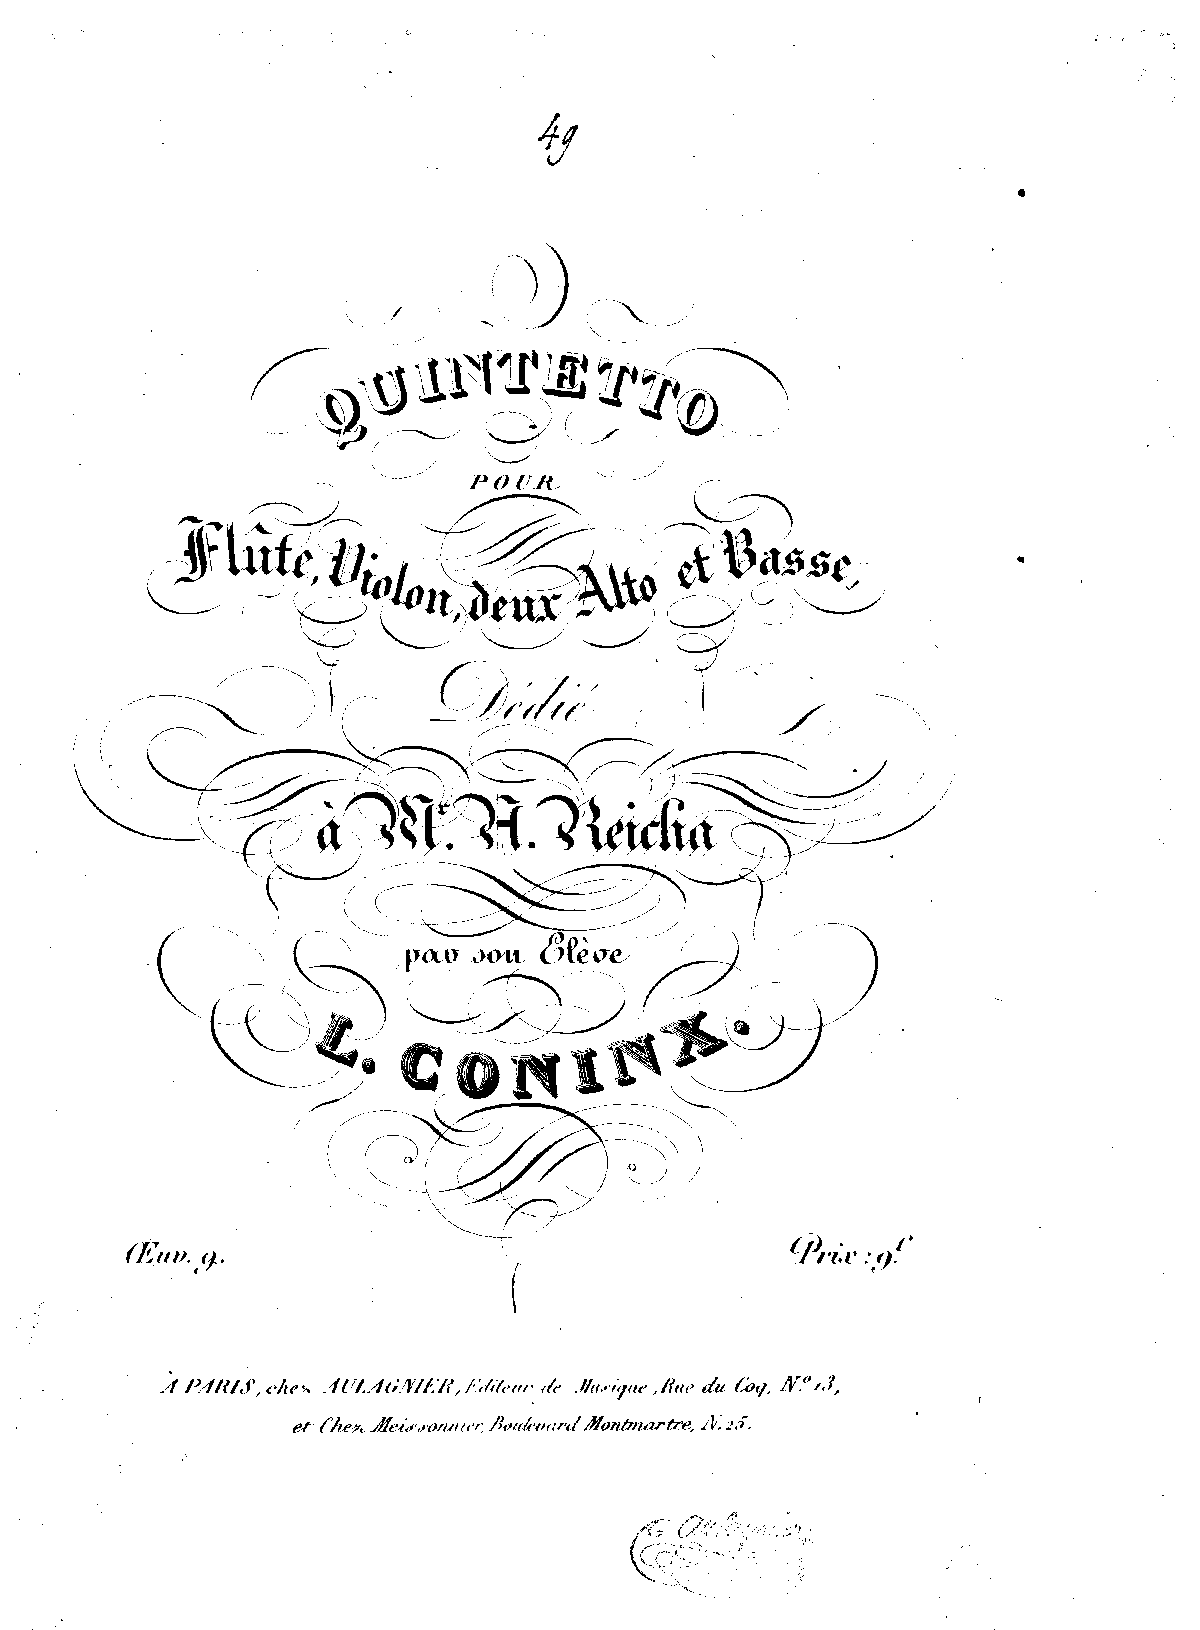 49
QUINTETTO
POUR
Flûte, Violon, deux Alto et Basse,
Dédié
à Mr. A. Reicha
par son Elève
L. CONINX.
Œuv. 9.
Prix : 9f.
À PARIS, chez AULAGNIER, Editeur de Musique, Rue du Coq, No. 13,
et Chez Meissonnier, Boulevard Montmartre, N. 25.
Aulagnier